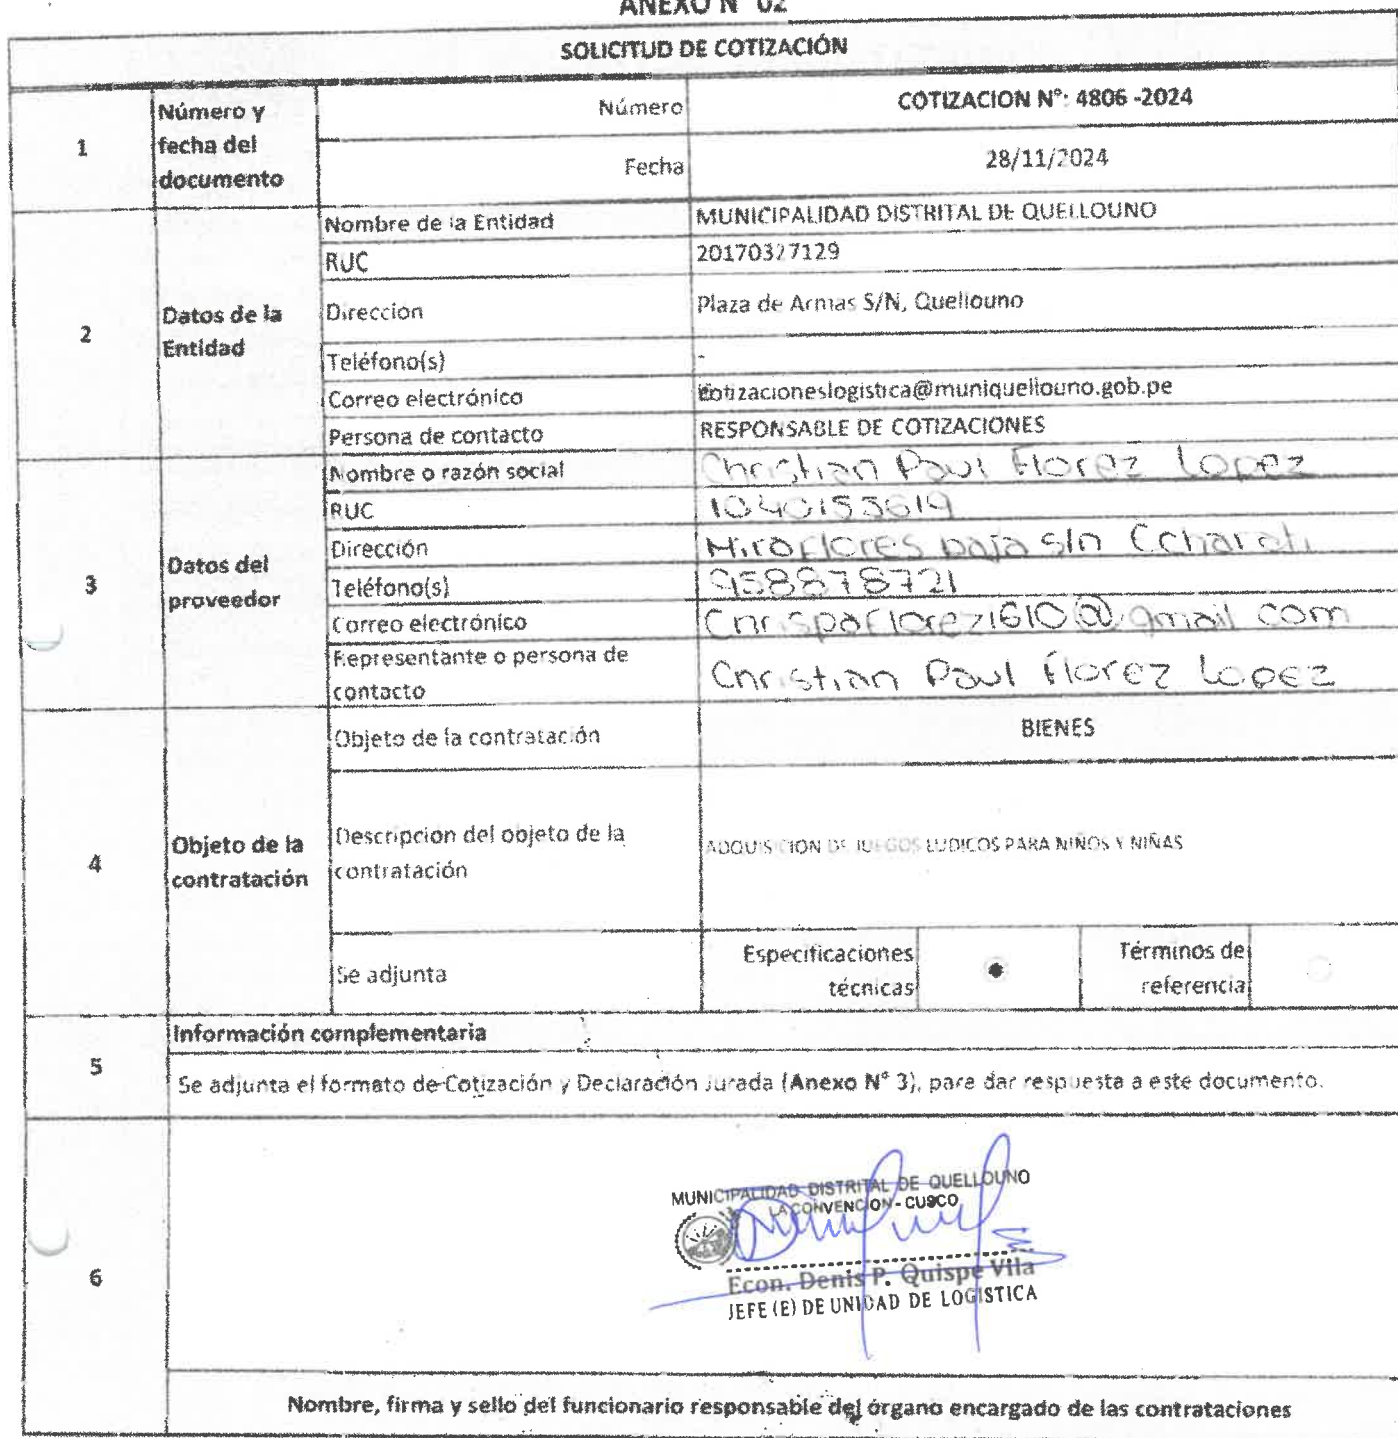 ANEXO N° 02
SOLICITUD DE COTIZACIÓN
1
Número y
fecha del
documento
Número
COTIZACION N°: 4806 -2024
Fecha
28/11/2024
2
Datos de la
Entidad
Nombre de la Entidad
MUNICIPALIDAD DISTRITAL DE QUELLOUNO
RUC
20170327129
Dirección
Plaza de Armas S/N, Quellouno
Teléfono(s)
-
Correo electrónico
cotizacioneslogistica@muniquellouno.gob.pe
Persona de contacto
RESPONSABLE DE COTIZACIONES
3
Datos del
proveedor
Nombre o razón social
Christian Paul Florez Lopez
RUC
1040153619
Dirección
Miraflores baja s/n Echarati
Teléfono(s)
958878721
Correo electrónico
Chrispaflorez1610@gmail com
Representante o persona de
contacto
Christian Paul Florez Lopez
4
Objeto de la
contratación
Objeto de la contratación
BIENES
Descripcion del objeto de la
contratación
ADQUISICION DE JUEGOS LUDICOS PARA NIÑOS Y NIÑAS
Se adjunta
Especificaciones
técnicas
Términos de
referencia
5
Información complementaria
Se adjunta el formato de Cotización y Declaración Jurada (Anexo N° 3), para dar respuesta a este documento.
6
MUNICIPALIDAD DISTRITAL DE QUELLOUNO
LA CONVENCION - CUSCO
Econ. Denis P. Quispe Vila
JEFE (E) DE UNIDAD DE LOGISTICA
Nombre, firma y sello del funcionario responsable del órgano encargado de las contrataciones